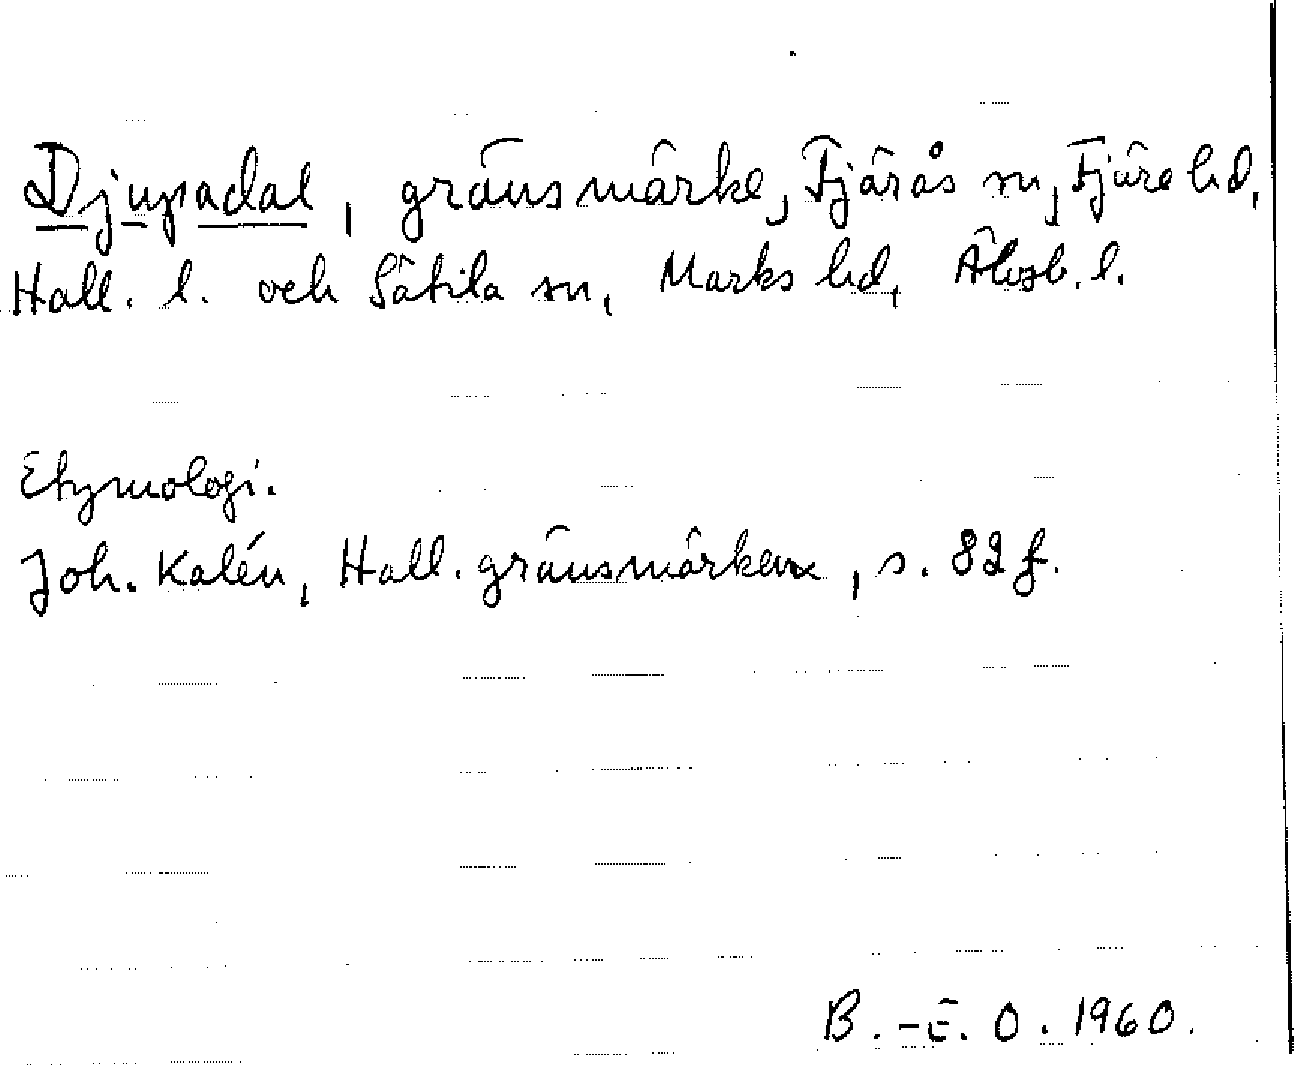 Djupadal, gränsmärke, Fjärås sn, Fjäre hd,
Hall. l. och Sätila sn, Marks hd, Älvsb. l.
Etymologi.
Joh. Kalén, Hall. gränsmärken, s. 82 f.
B.-E. O. 1960.